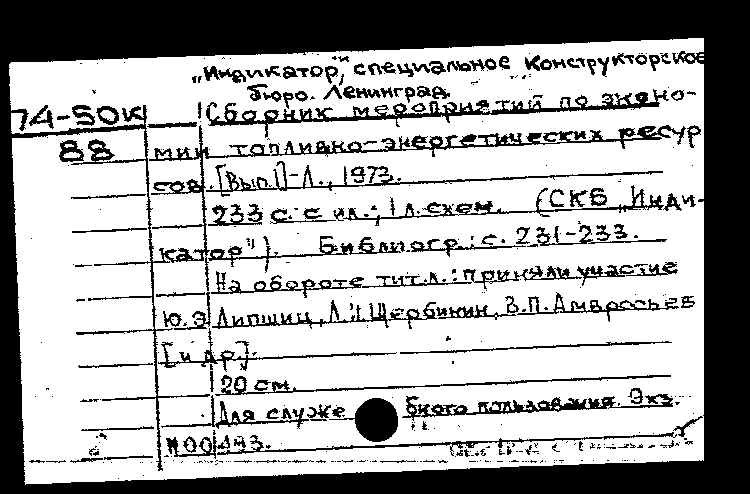 „Индикатор", специальное конструкторское
бюро. Ленинград.
74-50к Сборник мероприятий по эконо-
88 мии топливно-энергетических ресур
сов. [Вып.1]-Л., 1973.
233 с. с ил.; 1 л. схем. (СКБ „Инди-
катор"). Библиогр.: с. 231-233.
На обороте тит.л.: приняли участие
Ю.Э Липшиц, Л.И Щербинин, В.П. Амвросьев
[и др.].
20 см.
Для служебного пользования. Экз.
№00493.